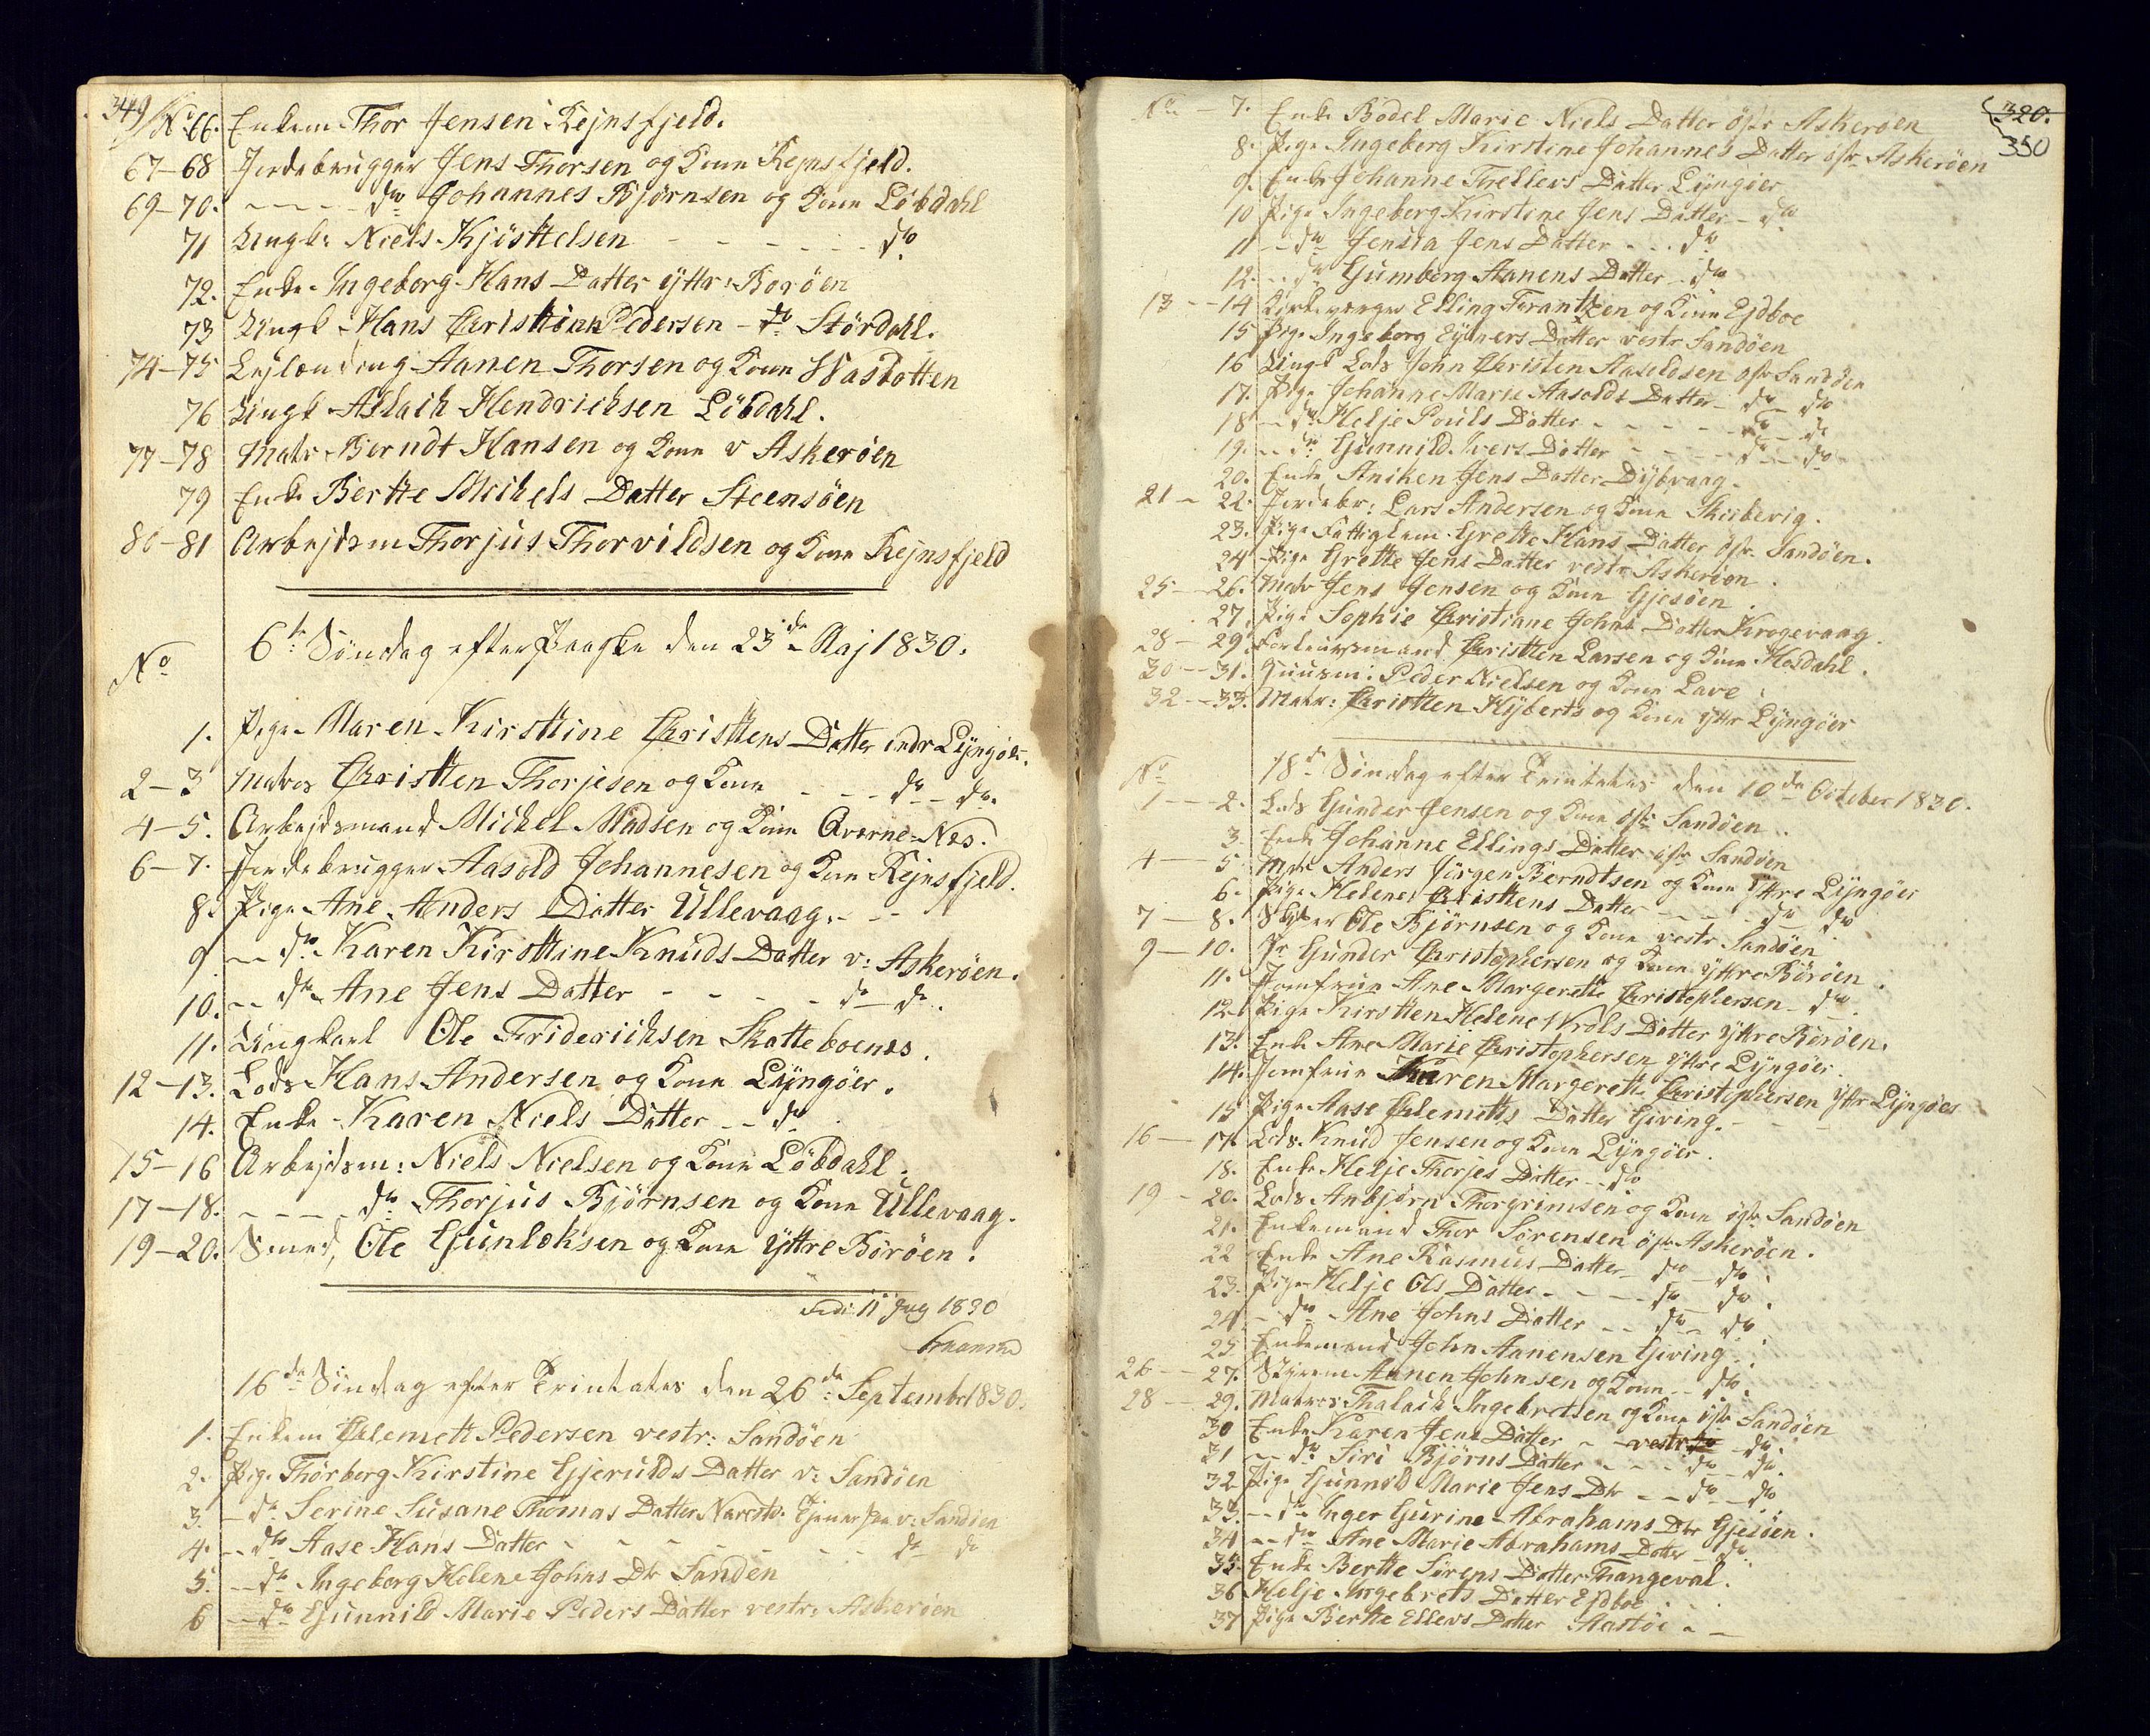 349
No 66. Enkem Thor Jensen Rejnsfjeld.
67-68 Jordebrugger Jens Thorsen og Kone Rejnsfjeld.
69-70. - - - - do Johannes Bjørnsen og Kone Løbdahl
71 Ungk: Niels Kjøsttelsen - - - - - - do
72. Enke Ingeborg Hans Datter ÿttr: Borøen
73 Ungk Hans Christian Pedersen - do Størdahl.
74-75 Lejlænding Aanen Thorsen og Kone Wasbotten
76 Ungk Aslach Hendrichsen Løbdahl.
77-78 Matr Berndt Hansen og Kone v Askerøen
79 Enke Bertte Michels Datter Steensøen
80-81 Arbejdsm Thorjus Thorvildsen og Kone Rejnsfjeld
No
6te Søndag efter Paaske den 23de Maj 1830.
1. Pige Maren Kirsttine Christtens Datter indr Lÿngøer.
2-3 Matros Christten Thorjesen og Kone - - - do - do.
4-5. Arbejdsmand Michel Madsen og Kone Qværne-Næs.
6-7. Jordebrugger Aasold Johannesen og Kone Rejnsfjeld.
8. Pige Ane Anders Datter Ullevaag. - -
9 - - do Karen Kirsttine Knuds Datter v: Askerøen.
10. - - do Ane Jens Datter - - - - do - do.
11. Ungkarl Ole Friderichsen Skatteboenes.
12-13. Lods Hans Andersen og Kone Lÿngøer.
14. Enke Karen Niels Datter - - do
15-16 Arbejdsm: Niels Nielsen og Kone Løbdahl.
17-18. - - - - do Thorjus Bjørnsen og Kone Ullevaag.
19-20. Smed, Ole Gunløksen og Kone ÿttre Børøen.
11 1830
16de Søndag efter Trinitates den 26de September 1830.
1. Enkem Clemett Pedersen vestr: Sandøen
2. Pige Thørborg Kirstine Gjerulds Datter v: Sandøen
3. - do Serine Susane Thomas Datter v: Sandøen
4. - - do Aase Hans Datter - - - - - - do do
5. - - do Ingeborg Helene Johns Dtr Sanden
6 - - do Gunnild Marie Peders Datter vestr: Askerøen
320.
350
No - 7. Enke Bodel Marie Niels Datter østr Askerøen
8. Pige Ingeborg Kirstine Johannes Datter østr Askerøen
9. Enke Johanne Thellevs Datter Lÿngøer
10 Pige Ingeborg Kirstine Jens Datter - do
11 - - do Jensia Jens Datter - - - do
12. - - do Gumborg Aanens Datter - do
13 - - 14 Kirkeverger Elling Torantzen og Kone Ejdboe
15 Pige Ingeborg Eÿvers Datter vestr Sandøen
16 Ungk Lods John Christen Aasoldsen østr Sandøen
17. Pige Johanne Marie Aasolds Datter - do - do
18 - - do Helje Pouls Datter - - - - - do - do
19. - - do Gunnild Ivers Datter - - - - do - do
20. Enke Aniken Jens Datter Dÿbvaag -
21 - 22. Jordebr: Lars Andersen og Kone Skirbevig.
23. Pige Fattiglem Grette Hans Datter østr Sandøen.
24 Pige Grette Jens Datter vestr Askerøen
25 - 26. Matr Jens Jensen og Kone Gjesøen.
27. Pige Sophie Christiane Johns Datter Krogevaag.
28 - 29. Forleursmand Christten Larsen og Kone Hosdahl.
30 - 31. Huusm: Peder Nielsen og Kone Lave
32 - 33. Matr: Christten Hÿberts og Kone ÿttr Lÿngøer
No
18de Søndag efter Trinitates den 10de October 1830.
1 - - 2. Lods Gunder Jensen og Kone østr Sandøen.
3. Enke Johanne Ellings Datter østr Sandøen
4 - 5 Matr Anders Jørgen Berndtsen og Kone ÿttre Lÿngøer
6. Pige Helene Christtens Datter - - - - do do
7 - 8. Skipper Ole Bjørnsen og Kone vestr Sandøen
9 - 10. Hr Gunder Christophersen og Kone ÿttre Børøen
11. Jomfrue Ane Margerette Christophersen - do.
12 Pige Kirstten Helene Nrols Datter ÿttre Børøen.
13. Enke Ane Marie Christophersen ÿttre Lÿngøer
14. Jomfrue Karen Margerette Christophersen ÿttr Lÿngøer
15 Pige Aase Clemetts Datter Giving. - - -
16 - 17. Lods Knud Jensen og Kone Lÿngøer.
18. Enke Helje Thorjes Datter - - do
19 - 20. Lods Anbjørn Thorgrimsen og Kone østr Sandøen
21. Enkemand Thor Sørensen østr Askerøen.
22 Enke Ane Rasmus Datter - do - do.
23. Pige Helje Ols Datter - - - - do - do.
24 - do Ane Johns Datter - - do - do.
25 Enkemand John Aanensen Giving.
26 - - 27. Styrem Aanen Johnsen og Kone - - do.
28 - - 29. Matros Thalach Ingebretsen og Kone østr Sandøen
30 Enke Karen Jens Datter - vestr do - do.
31 - - do Siri Bjørns Datter - - - - do - do.
32 Pige Gunnild Marie Jens Dtr - - do - do
33. - - do Inger Gurine Abrahams Dtr Gjesøen.
34 - - do Ane Marie Abrahams Datter - do.
35. Enke Bertte Sørens Datter Thangeval.
36 Helje Ingebrets Datter Ejdboe. -
37 Pige Bertte Ellevs Datter Aastøe - -